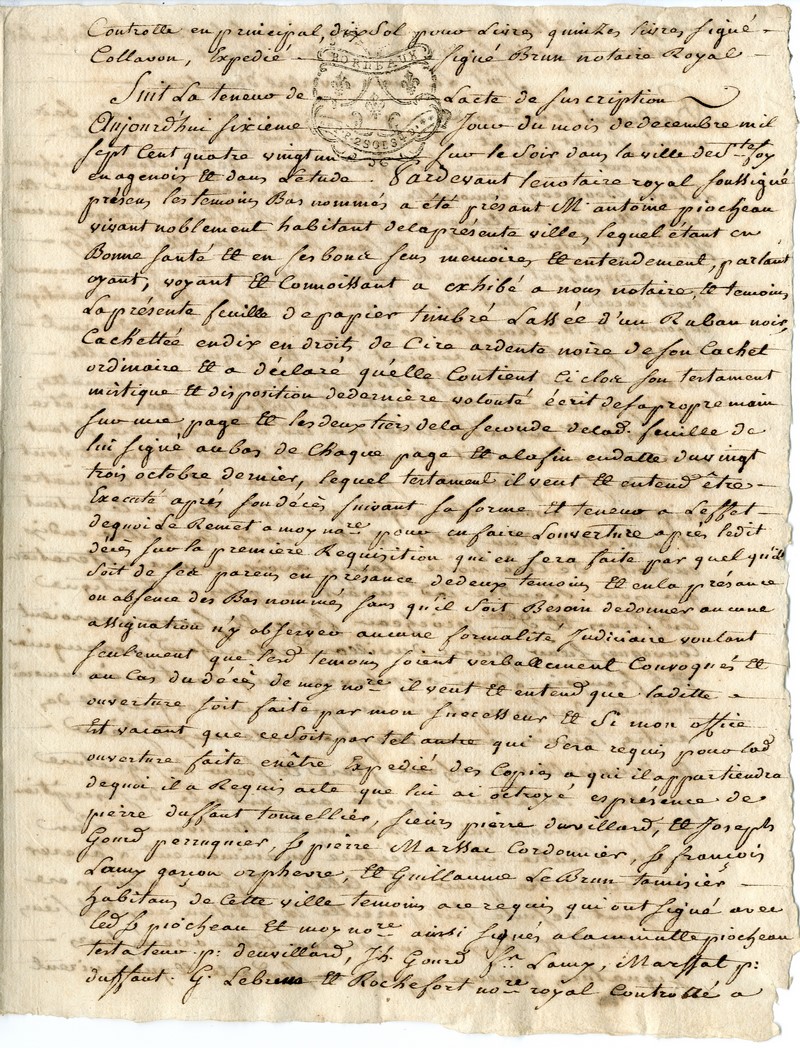 Controlle en principal, dix Sol pour Livres quinzes livres signé
Collavon, Expedié signé Brun notaire Royal
BORDEAUX
Suit La teneur de Lacte de suscription
Aujourdhui sixieme Jour du mois de decembre mil
sept cent quatre vingt un sur le soir dans la ville de Ste foy
en agenois Et dans Letude. Pardevant le notaire royal soussigné
présens les temoins Bas nommés a été présant Mr antoine piocheau
vivant noblement habitant de la présente ville, lequel étant en
Bonne santé Et en ses bons sens memoires Et entendement, parlant
oyant, voyant Et Connoissant a exhibé a nous notaire, Et temoins
La présente feuille de papier timbré Lassée d'un Ruban noir,
Cachettée en dix endroits de Cire ardente noire de son Cachet
ordinaire Et a déclaré qu'elle Contient Ci clos son testament
mistique Et disposition de dernière volonté écrit de sa propre main
sur une page Et les deux tiers de la seconde de lad. feuille de
lui signé au bas de Chaque page Et a la fin en datte du vingt
trois octobre dernier, lequel testament il veut Et entend être
Executé aprés son décès suivant sa forme Et teneur a L'effet
de quoi Le Remet a moy nore pour en faire L'ouverture après ledit
décès sur la premiere Requisition qui en sera faite par quel qu'il
soit de ses parens en présance de deux temoins Et en la présance
ou absence des Bas nommés sans qu'il soit Besoin de donner aucune
assignation n'y observer aucune formalité Judiciaire voulant
seulement que lesd temoins soient verballement Convoqués Et
au Cas du décès de moy nore il veut Et entend que laditte
ouverture soit faite par mon successeur Et Si mon office
Est vacant que ce soit par tel autre qui Sera requis pour lad
ouverture faite en être Expedié des Copies a qui il appartiendra
de quoi il a Requis acte que lui ai octroyé es présence de
pierre duffaut tonnellier, sieurs pierre duvillard, Et Joseph
Gourd perruquier, Sr pierre Marssac Cordonnier, Sr françois
Lamy garçon orphevre, Et Guillaume LeBrun tamisier
habitans de Cette ville temoins a ce requis qui ont signé avec
led Sr piocheau Et moy nore ainsi signés a la minutte piocheau
testateur p: deuvillard, Jh Gourd fr. Lamy, Marssat p:
duffaut. G. Lebrun Et Rochefort nore royal Controllé a